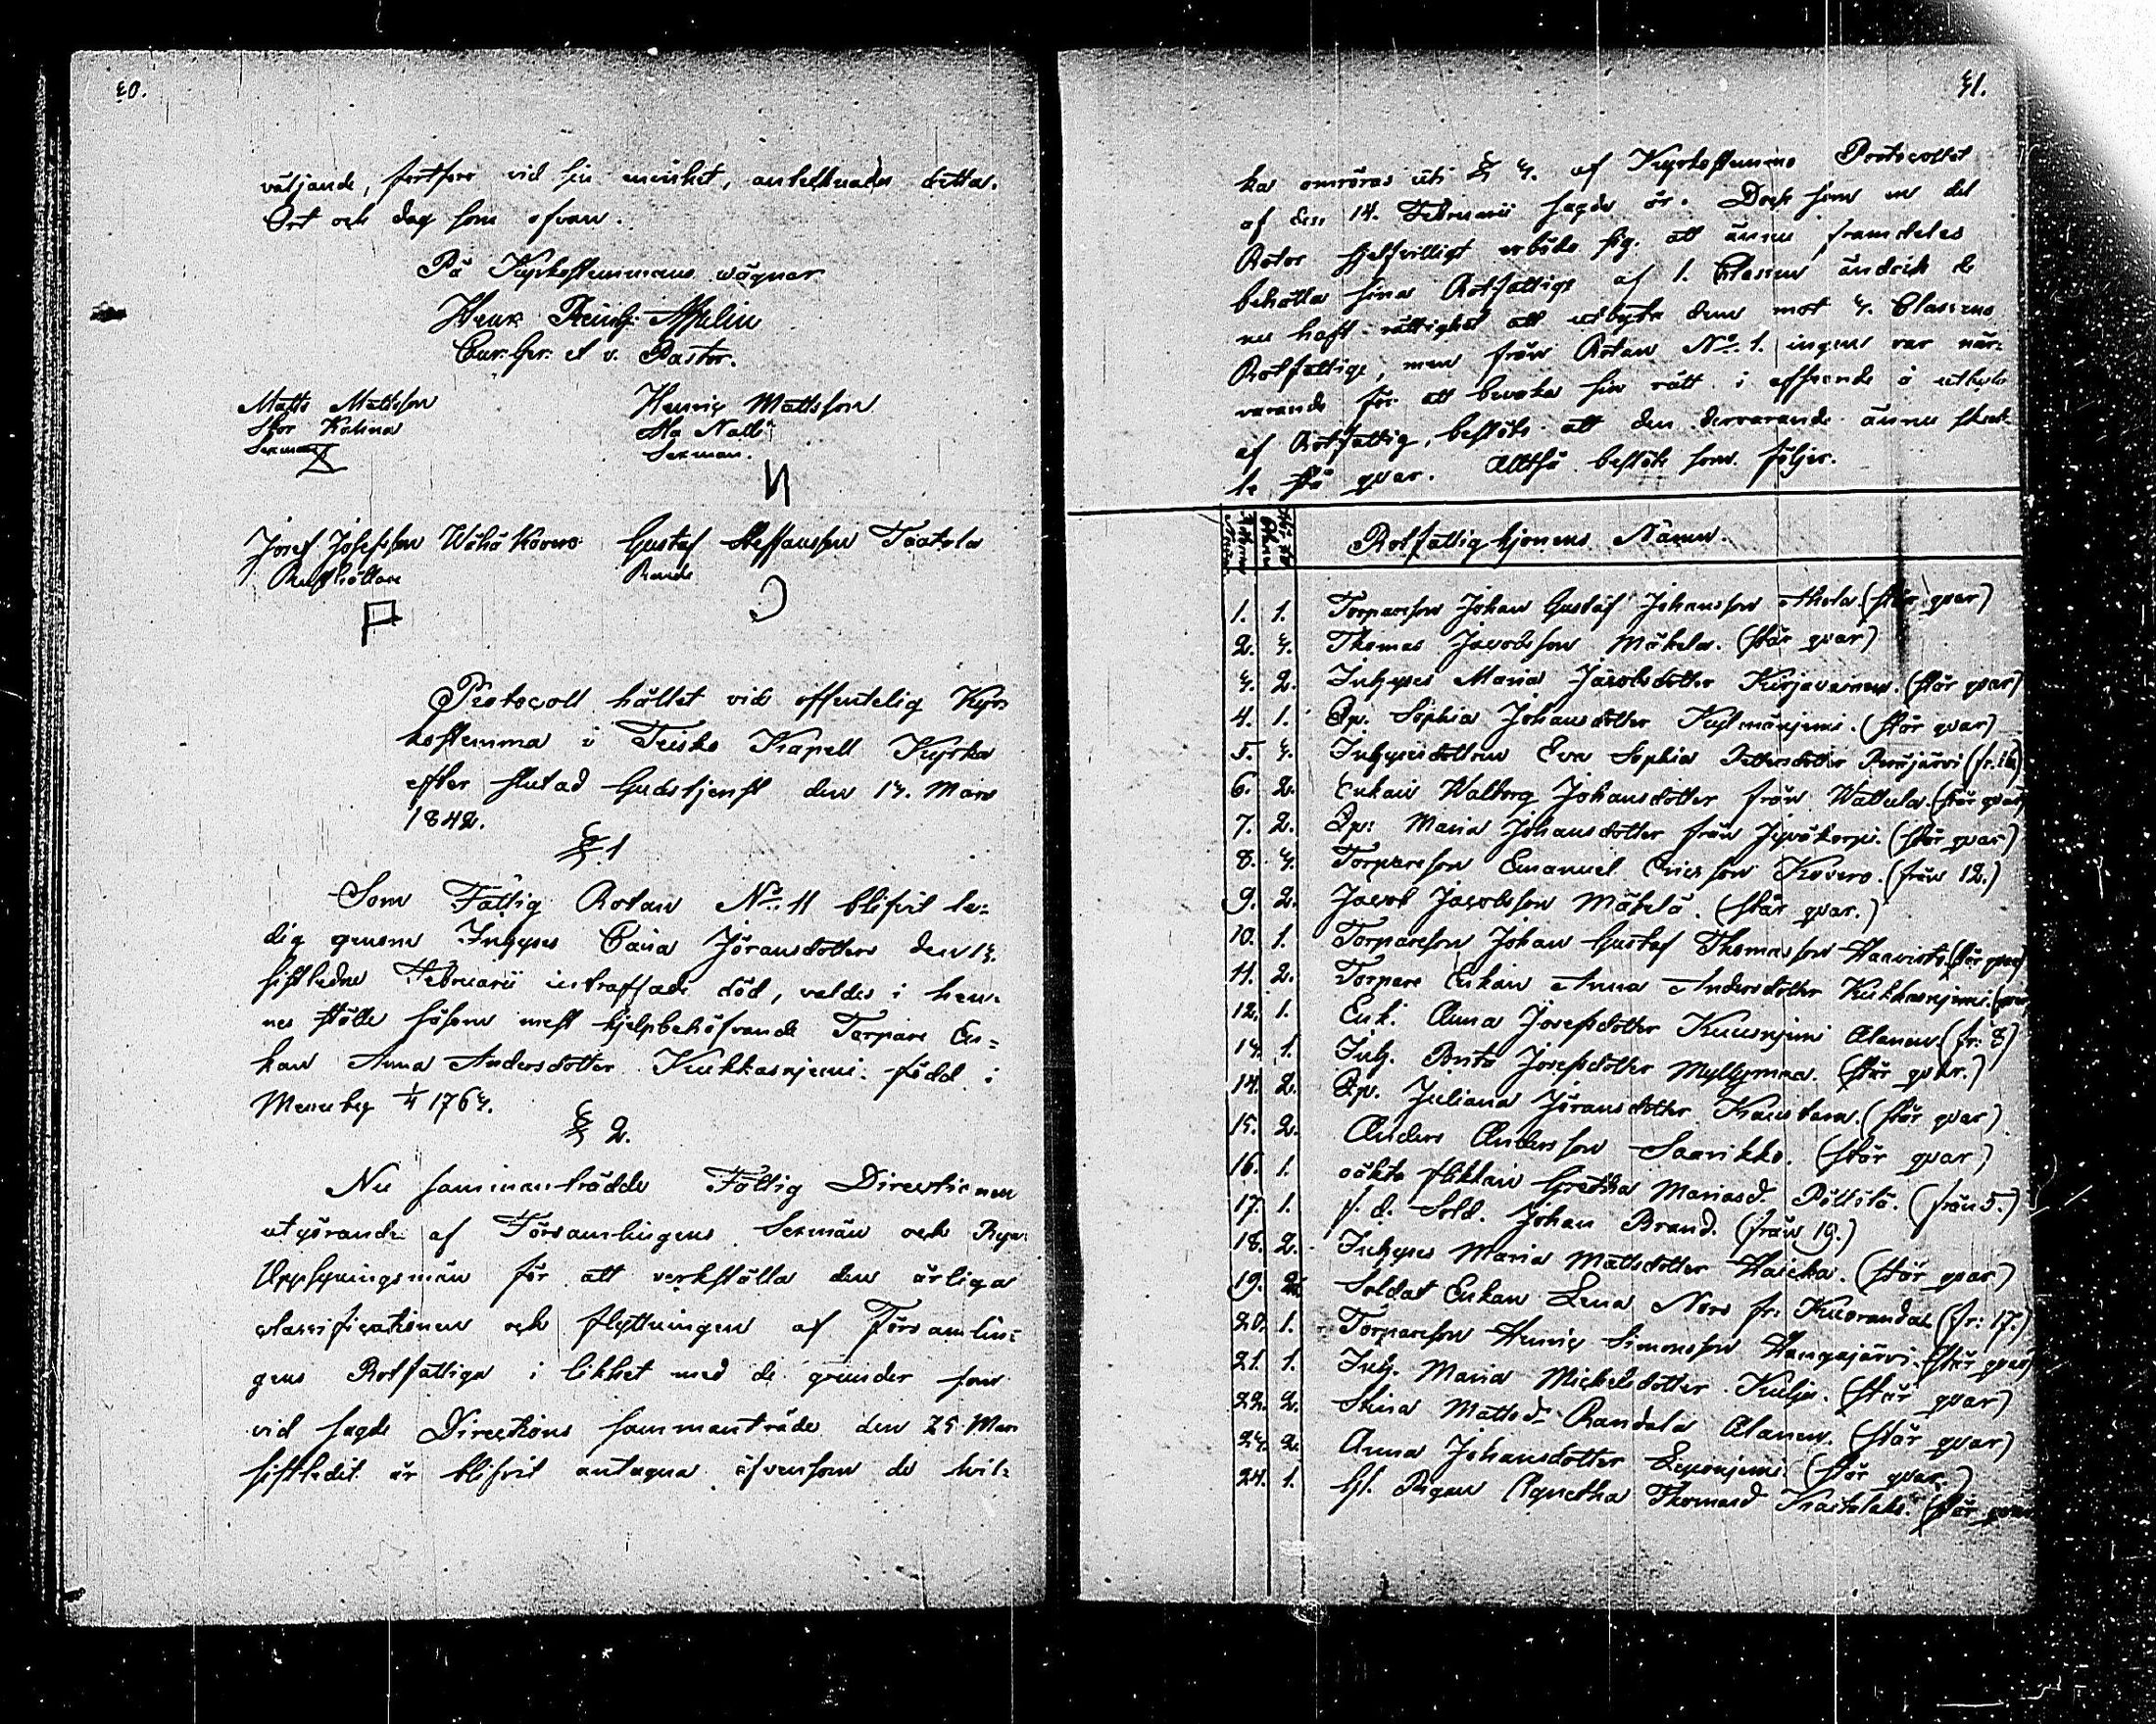 30.
väljande, fortfore vid sin enighet, antecknades detta.
Ort och dag som ofvan.
På Kyrkostemmans wägnar
Henr. Reinh. Aspelin
Cur. Ger. et v. Pastor.
Matts Mattsson
Stor Kolina
Sexman
Henric Mattsson
Ala
Sexman.
Josef Josefsson Wähä Kovero
Rusthållare
Gustaf Steffansson Taatala
Bonde
Protocoll hållet vid offentelig Kyr-
kostemma i Teisko Kapell Kyrka
efter slutad Gudstjenst den 13. Mars
1842.
§. 1
Som Fattig Rotan No. 11 blifvit le-
dig genom Inhyses Caisa Jöransdotters den 13.
sistledne Februarii intraffade död, valdes i hen-
nes ställe såsom mest hjelpbehöfvande Torpare En-
kan Anna Andersdotter Kukkasnjemi född i
Messuby 1763.
§ 2.
Nu sammanträdde Fattig Directionen
utgörande af Församlingens Sexmän och
Uppsyningsmän för att verkställa den årliga
classificationen och flyttningen af Församlin-
gens Rotfattiga i likhet med de grunder som
vid sagde Directions sammanträde den 25 Mars
sistledit år blifvit antagna äfvensom de hvil-
31.
ka omröras uti § 3. af Kyrkostemmo Protocollet
af den 14. Februarii sagde år. Dock som en del
Rotor sjelfvilligt erböds sig att ännu framdeles
behålla sina Rotfattige af 1. Classen ändock de
nu haft rättighet att utbyta dem mot 3. Classens
Rotfattige, men från Rotan No. 1. ingen var när-
varande för att bevaka sin rätt i afseende å utbyte
af Rotfattig, beslöts att den dervarande ännu skul-
le stå qvar. Alltså beslöts som följer.
Rotfattighjonens Namn.
1. 1. Torpareson Johan Gustaf Johansson Ahola (står qvar)
2. 3. Thomas Jacobsson Mäkelä. (står qvar)
3. 2. Inhyses Maria Jacobsdotter Kirjavainen. (står qvar)
4. 1. Pp. Sophia Johansdotter Kylmänjemi. (står qvar)
5. 3. Inhysesdottren Eva Sophia Pettersdotter Peräjärvi (fr. 16)
6. 2. Enkan Walborg Johansdotter från Wattula. (står qvar)
7. 2. Pp: Maria Johansdotter från Jyväkorpi. (står qvar)
8. 3. Torpareson Emanuel Ericsson Kovero. (från 12.)
9. 2. Jacob Jacobsson Mäkelä. (står qvar.)
10. 1. Torpareson Johan Gustaf Thomasson Haavisto (står qvar)
11. 2. Torpare Enkan Anna Andersdotter Kukkasnjemi. (qvar)
12. 1. Enk. Anna Josefsdotter Kuusnjemi Alanen. (fr: 8)
13. 1. Inh. Brita Josefsdotter Myllymaa. (står qvar.)
14. 2. Pp. Juliana Jöransdotter Kaustara. (står qvar)
15. 2. Anders Andersson Saarikko. (står qvar)
16. 1. oäkta flickan Gretha Mariasd. Pöllölä. (från 5.)
17. 1. f. d. Sold. Johan Brand. (från 19.)
18. 2. Inhyses Maria Mattsdotter Haicka. (står qvar)
19. 2. Soldat Enkan Lena Nors fr: Kuorandak (fr: 17.)
20. 1. Torpareson Henric Simonsson Hangasjärvi. (står qvar)
21. 1. Inh. Maria Mickelsdotter Kulju. (står qvar)
22. 2. Stina Mattsd. Randala Alanen. (står qvar)
23. 2. Anna Johansdotter Leponjemi (står qvar.)
24. 1. bl. Pigan Agnetha Thomasd. (står qvar)